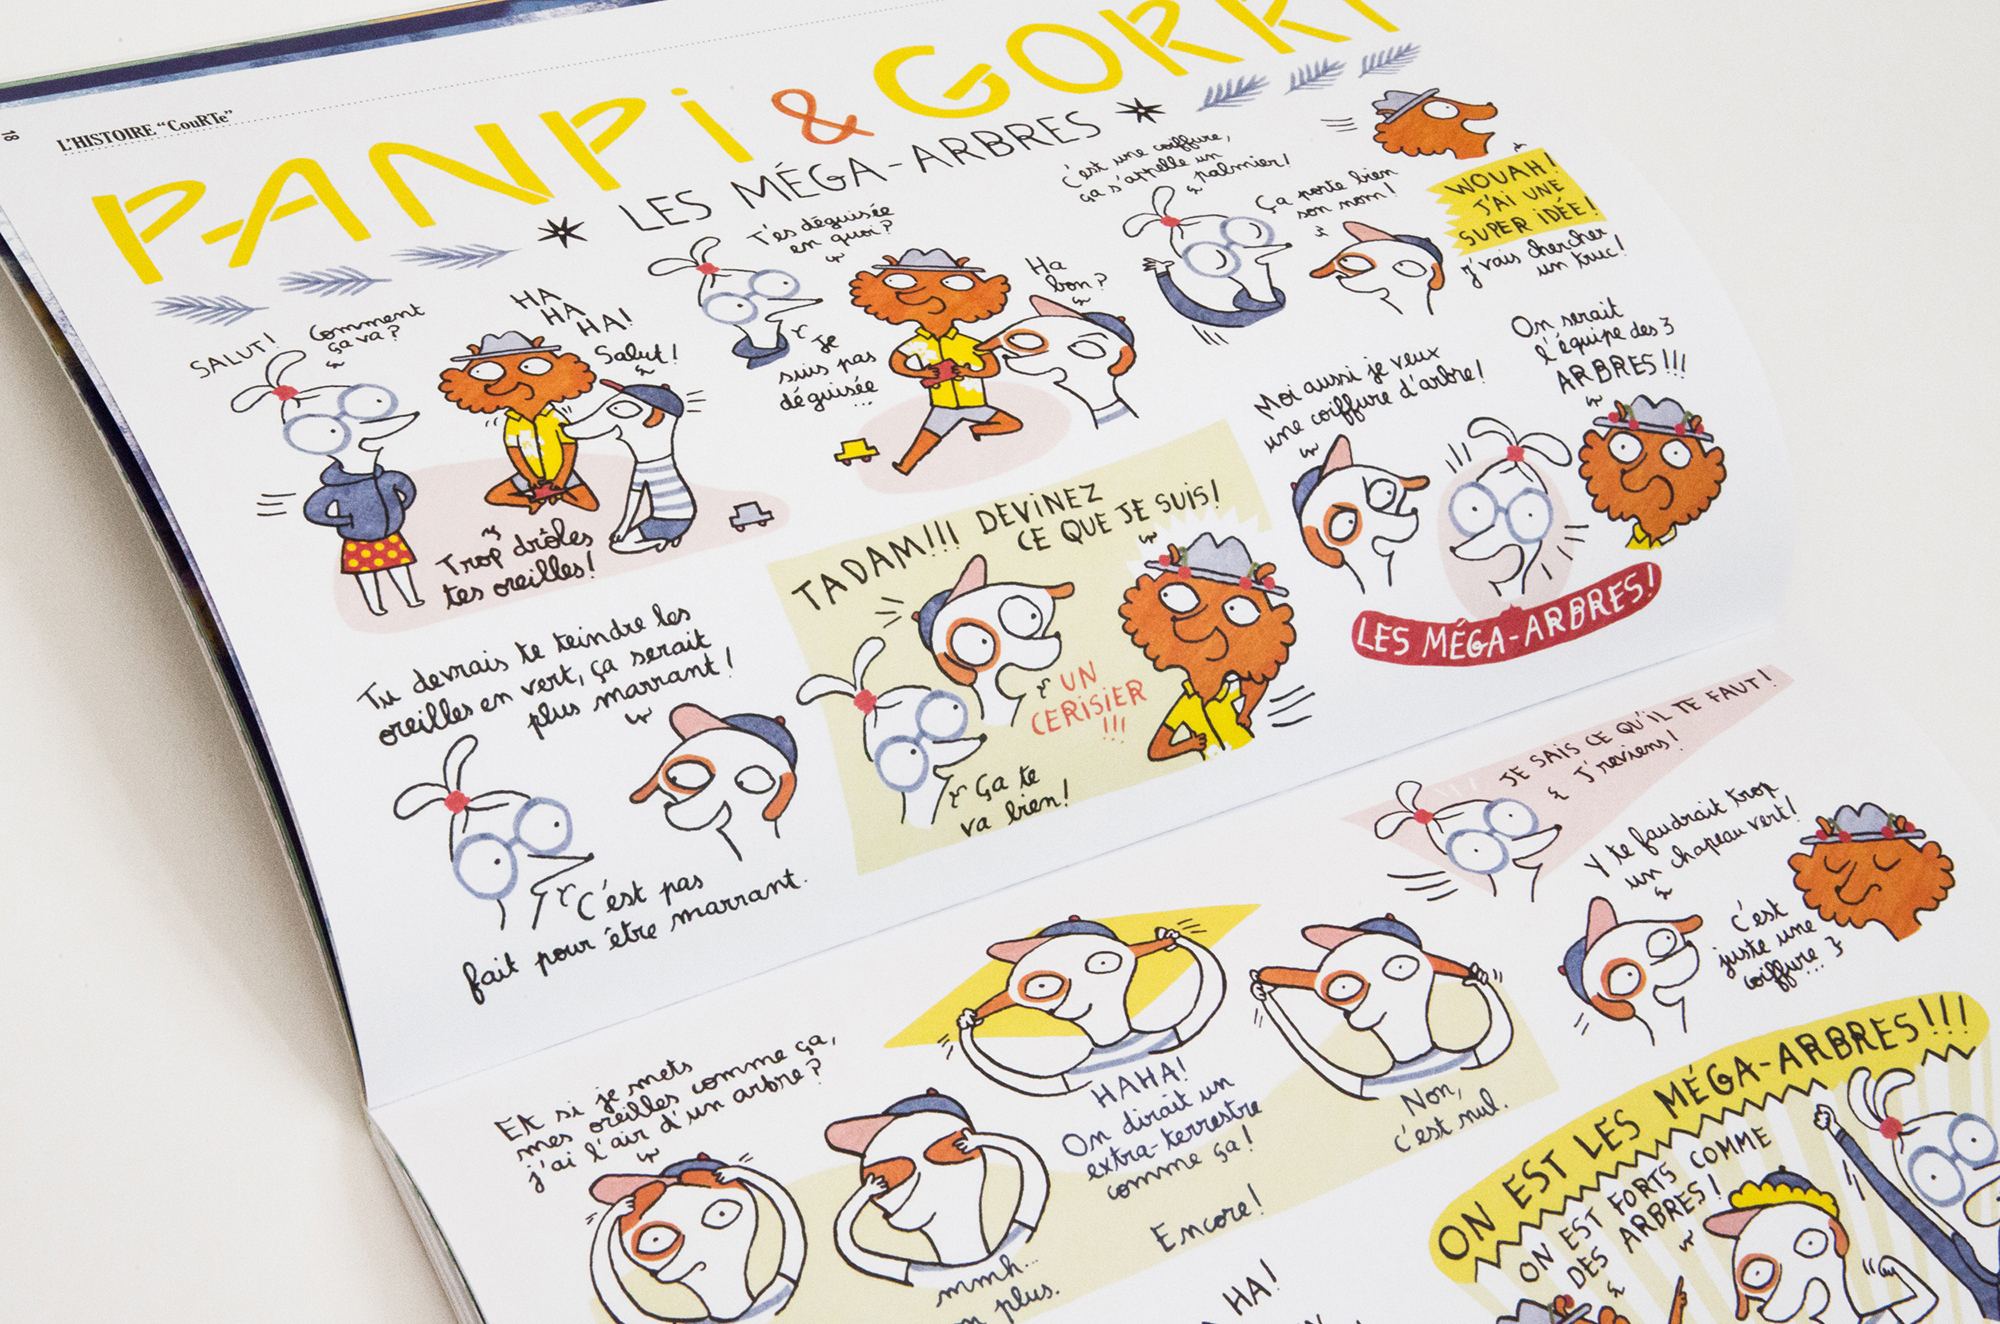 18
L'HISTOIRE "CouRTe"
PANPi & GORRI
LES MÉGA-ARBRES
SALUT!
Comment
ça va?
HA
HA
HA!
Salut!
Trop drôles
tes oreilles!
T'es déguisée
en quoi?
Je
suis pas
déguisée
...
Ha
bon?
C'est une coiffure,
ça s'appelle un
palmier!
Ça porte bien
son nom!
WOUAH!
J'AI UNE
SUPER IDÉE!
j'vais chercher
un truc!
Tu devrais te teindre les
oreilles en vert, ça serait
plus marrant!
C'est pas
fait pour être marrant.
TADAM!!! DEVINEZ
CE QUE JE SUIS!
UN
CERISIER
!!!
Ça te
va bien!
Moi aussi je veux
une coiffure d'arbre!
On serait
l'équipe des 3
ARBRES!!!
LES MÉGA-ARBRES!
Et si je mets
mes oreilles comme ça,
j'ai l'air d'un arbre?
mmh...
plus.
HAHA!
On dirait un
extra-terrestre
comme ça!
Encore!
Non,
c'est nul.
JE SAIS CE QU'IL TE FAUT!
J'reviens!
Y te faudrait trop
un chapeau vert!
C'est
juste une
coiffure...
HA!
ON EST LES MÉGA-ARBRES!!!
ON EST FORTS COMME
DES ARBRES!